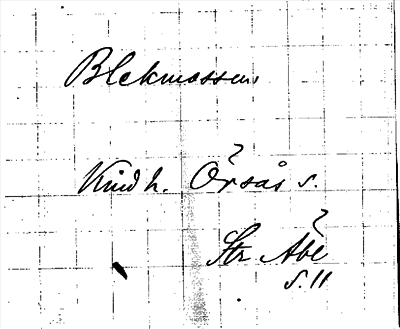 Blekmossen
Kind h. Örsås s.
Str Åbl
s. 11